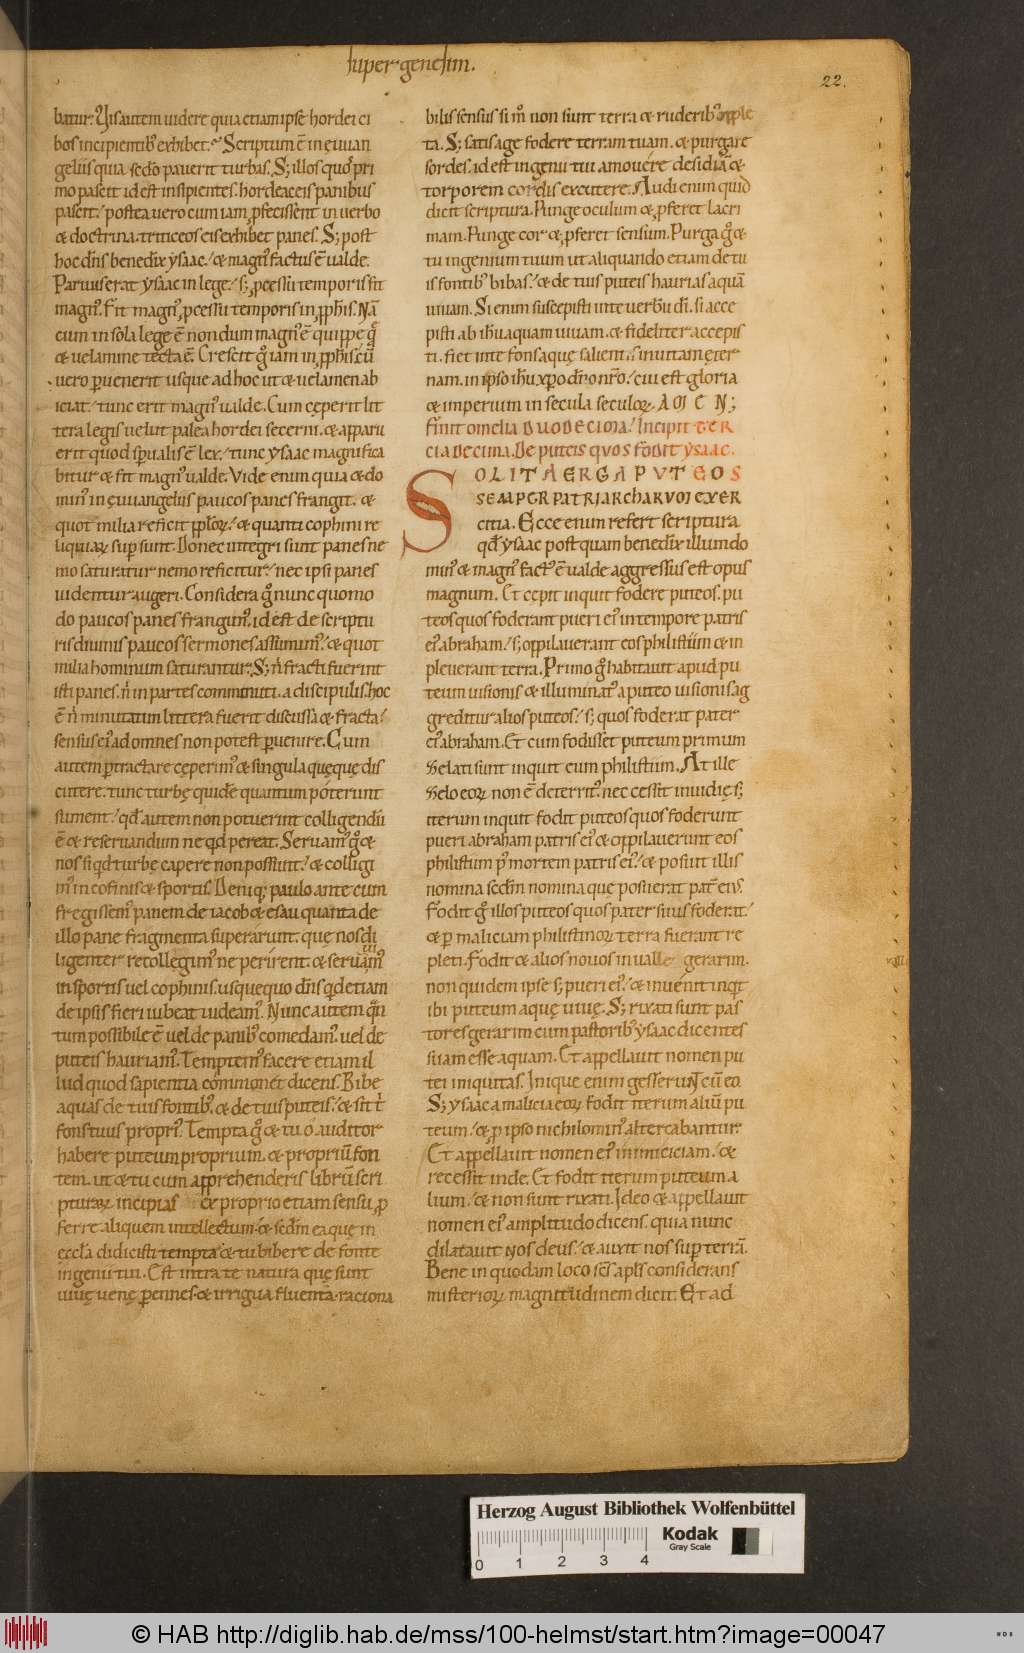 super genesim.
22.
batur. Vis autem uidere quia etiam ipse hordei ci
bos incipientib' exhibet. Scriptum ē in euuan
geliis quia sedo pauerit turbas. S; illos quos pri
mo pascit id est insipientes. hordeaceis panibus
pascit. postea uero cum iam pfecissent in uerbo
& doctrina. triticeos eis exhibet panes. S; post
hoc dn̄s benedix̄ ysaac. & magn' factus ē ualde.
Paruus erat ysaac in lege. s; pcessu temporis fit
magn'. Fit magn' pcessu temporis in pphis. Nā
cum in sola lege ē nondum magn' ē quippe q̄
& uelamine tecta ē. Crescit g iam in pphis. cū
uero puenerit usque ad hoc ut & uelamen ab
iciat. tunc erit magn' ualde. Cum cęperit lit
tera legis uelut palea hordei secerni. & apparu
erit quod spiualis ē lex. tunc ysaac magnifica
bitur & fit magn' ualde. Vide enim quia & do
min' in euuangeliis paucos panes frangit. &
quot milia reficit pplor. & quanti cophini re
liquiar sup sunt. Donec integri sunt panes ne
mo saturatur nemo reficitur. nec ipsi panes
uidentur augeri. Considera g nunc quomo
do paucos panes frangim'. id est de scriptu
ris diuinis paucos sermones assumim'. & quot
milia hominum saturantur. S; n̄ fracti fuerint
isti panes. n̄ in partes comminuti. a discipulis. hoc
ē n̄ minutatim littera fuerit discussa & fracta.
sensus ei' ad omnes non potest puenire. Cum
autem ptractare cęperim' & singula quęque dis
cutere. tunc turbę quidē quantum poterunt
sument. qd autem non potuerint colligendū
ē & reseruandum ne qd pereat. Seruam' g &
nos siqd turbę capere non possunt. & colligi
m' in cofinis & sportis. Deniq; paulo ante cum
fregissem' panem de iacob & esau quanta de
illo pane fragmenta superarunt. quę nos di
ligenter recollegim' ne perirent. & seruam'
in sportis uel cophinis. usque quo dn̄s qd etiam
de ipsis fieri iubeat uideam'. Nunc autem q̄n
tum possibile ē uel de panib' comedam'. uel de
puteis hauriam'. Temptem' facere etiam il
lud quod sapientia commonet dicens. Bibe
aquas de tuis fontib'. & de tuis puteis. & sit t̄
fons tuus propri'. Tempta g & tu o auditor
habere puteum proprium. & propriū fon
tem. ut & tu cum apprehenderis librū scri
pturar. incipias ex proprio etiam sensu p
ferre aliquem intellectum. & sedm ea quę in
eccla didicisti tempta & tu bibere de fonte
ingenii tui. Est intra te natura quę sunt
uiuę uenę pennes. & irrigua fluenta. raciona
bilis sensus si m̄ non sunt terra & ruderib' opple
ta. S; satis age fodere terram tuam. & purgare
sordes. id est ingenii tui amouere desidiā &
torporem cordis excutere. Audi enim quid
dicit scriptura. Punge oculum & pferet lacri
mam. Punge cor & pferet sensum. Purga g &
tu ingenium tuum ut aliquando etiam de tu
is fontib' bibas. & de tuis puteis haurias aquā
uiuam. Si enim suscepisti inte uerbū di. si acce
pisti ab ihu aquam uiuam. & fideliter accepis
ti. fiet inte fons aquę salientis in uitam eter
nam. in ipso ihu xpo dno nro. cui est gloria
& imperium in secula seculor. AMEN;
finit omelia DUODECIMA. Incipit TER
CIA DECIMA. De puteis quos fodit ysaac.
SOLITA ERGA PUTEOS
SEMPER PATRIARCHARUM EXER
citia. Ecce enim refert scriptura
qd ysaac post quam benedix̄ illum do
min' & magn' fact' ē ualde aggressus est opus
magnum. Et cępit inquit fodere puteos. pu
teos quos foderant pueri ei' in tempore patris
ei' abraham. s; oppilauerant eos philistiim & in
pleuerant terra. Primo g habitauit apud pu
teum uisionis & illuminat' a puteo uisionis ag
greditur alios puteos. s; quos foderat pater
ei' abraham. Et cum fodisset puteum primum
zelati sunt inquit eum philistiim. At ille
zelo eor non ē deterrit'. nec cessit inuidię s;
iterum inquit fodit puteos quos foderunt
pueri abraham patris ei' & oppilauerunt eos
philistiim p' mortem patris ei'. & posuit illis
nomina sedm nomina que posuerat pat ei'.
Fodit g illos puteos quos pater suus foderat.
& p maliciam philistinor terra fuerant re
pleti. Fodit & alios nouos in ualle gerarim.
non quidem ipse s; pueri ei'. & inuenit inqt
ibi puteum aquę uiuę. S; rixati sunt pas
tores gerarim cum pastorib' ysaac dicentes
suam esse aquam. Et appellauit nomen pu
tei iniquitas. Inique enim gesserunt cū eo
S; ysaac a malicia eor. fodit iterum aliū pu
teum. & p ipso nichilomin' altercabantur
Et appellauit nomen ei' inimiciciam. &
recessit inde. Et fodit iterum puteum a
lium. & non sunt rixati. Ideo & appellauit
nomen ei' amplitudo dicens. quia nunc
dilatauit nos deus. & auxit nos sup terrā.
Bene in quodam loco scs apls considerans
misterior magnitudinem dicit. Et ad
Herzog August Bibliothek Wolfenbüttel
Kodak
Gray Scale
0 1 2 3 4
© HAB http://diglib.hab.de/mss/100-helmst/start.htm?image=00047